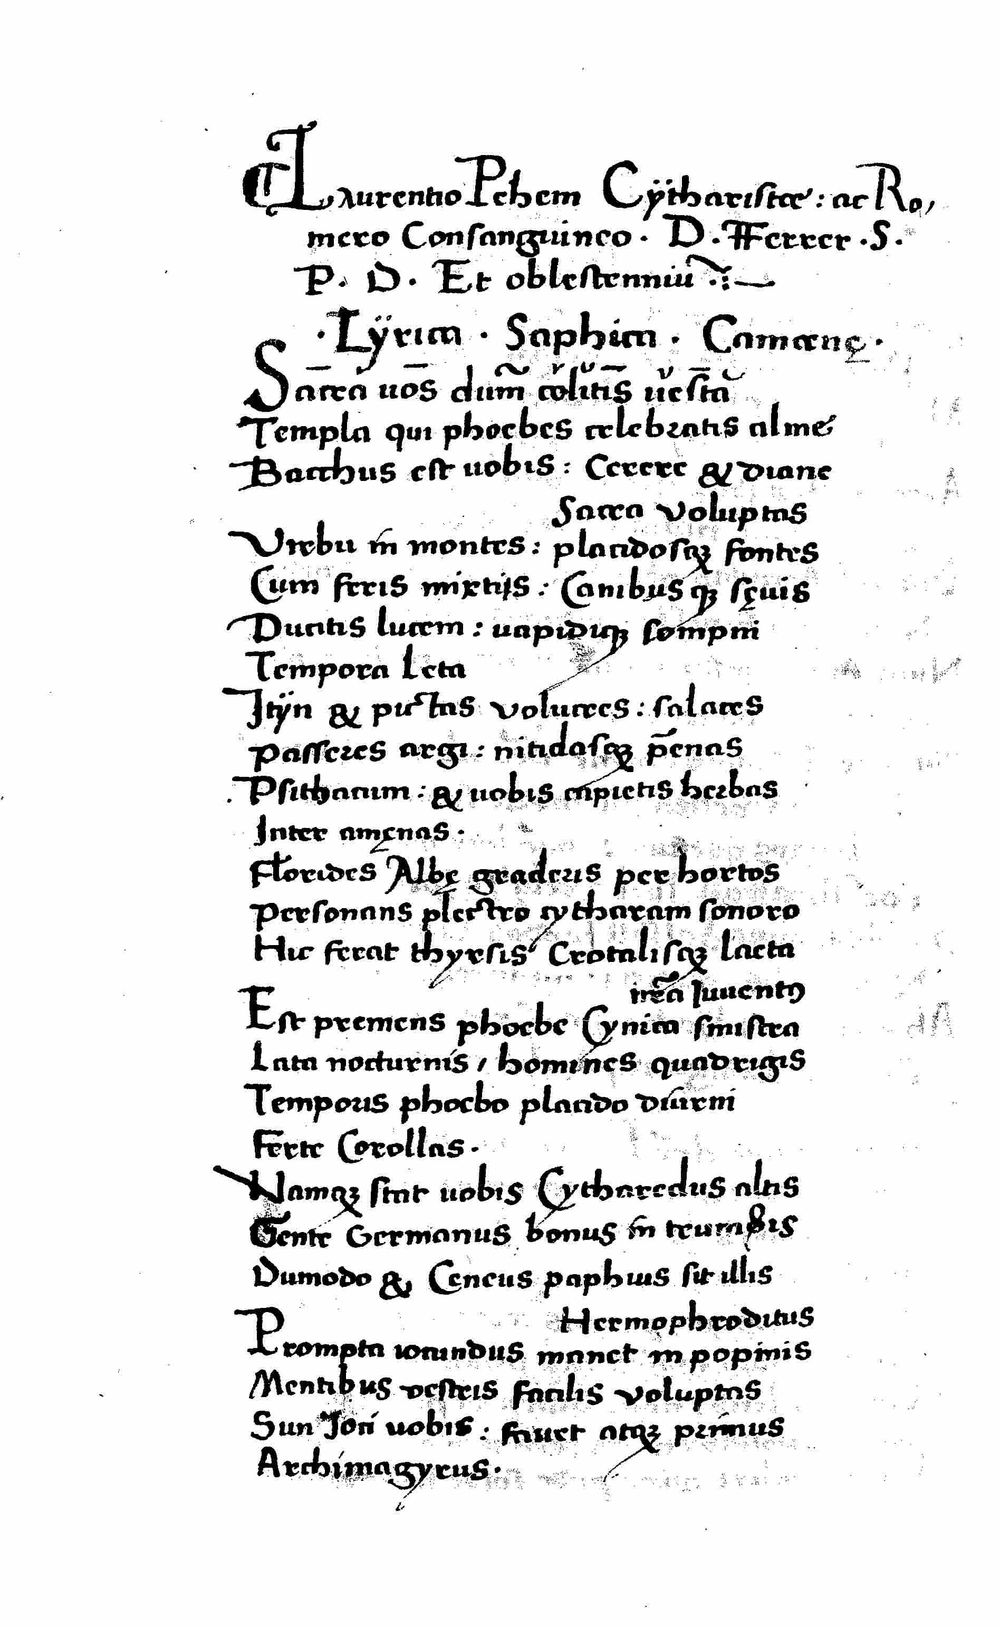 Laurentio Pehem Cÿtharistæ: ac Ro,
mero Consanguineo. D. FFerrer. S.
P. D. Et
.Lÿrica. Saphica. Camœnę.
Sacra uos dum colitis uesta
Templa qui phoebes celebratis alme
Bacchus est uobis: Cerere & diane
Sacra voluptas
Vrbii in montes: placidosqꝫ fontes
Cum feris mixtijs: Canibusqꝫ sęuis
Ducitis lucem: uapidiqꝫ sompni
Tempora leta
Itÿn & pictas volucres: salaces
Passeres argi: nitidasqꝫ pēnas
Psithacum: & uobis capietis herbas
Inter amęnas.
Florides Albę graderis per hortos
Personans plectro cytharam sonoro
Hic ferat thyrsis Crotalisqꝫ laeta
Iuuentꝰ
Est premens phoebe Cynica sinistra
Lata nocturnis / homines quadrigis
Temporis phoebo placido diurni
Ferte Corollas.
Namqꝫ stat uobis Cytharedus altis
Gente Germanus bonus in
Dumodo & Ceneus paphius sit illis
Hermophroditus
Prompta iocundus manet in popinis
Mentibus vestris facilis voluptas
Sun Ioci uobis: fauet atqꝫ primus
Archimagyrus.